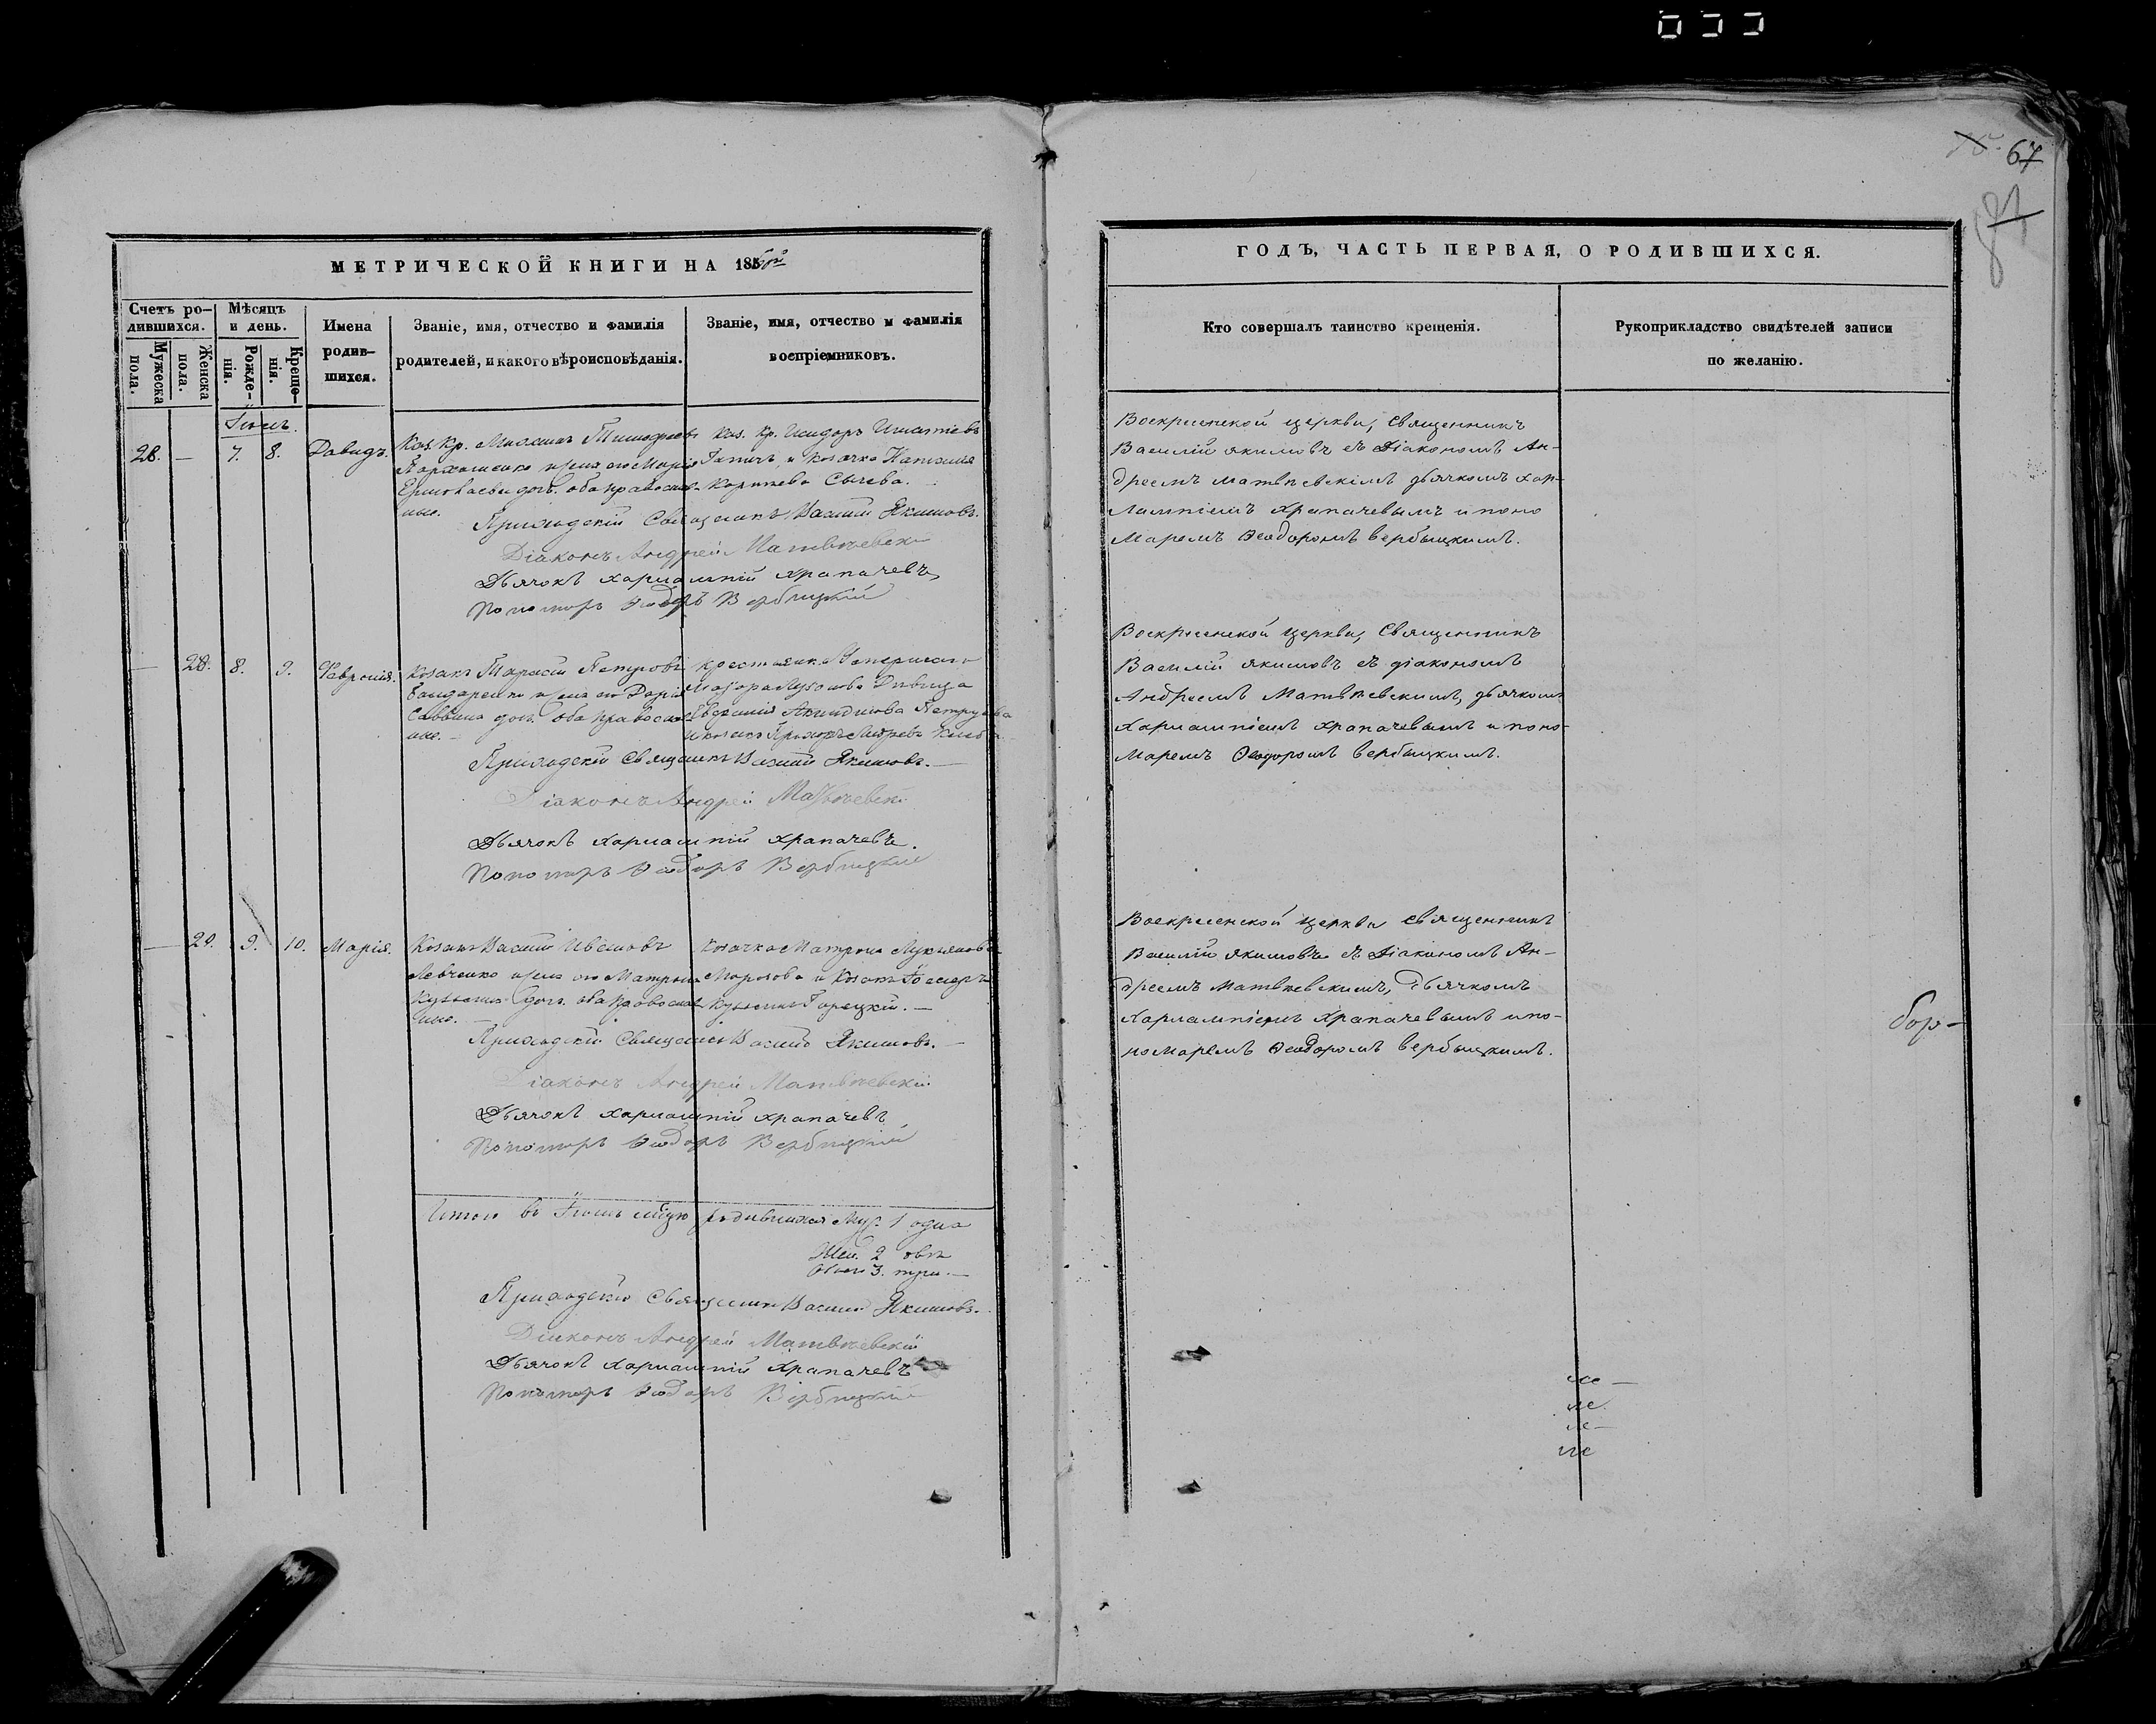 67
87
МЕТРИЧЕСКОЙ КНИГИ НА 185
Счетъ ро-
дившихся.
Мужеска
пола.
Женска
пола.
Мѣсяцъ
и день.
Рожде-
нія.
Креще-
нія.
Имена
родив-
шихся.
Званіе, имя, отчество и фамилія
родителей, и какого вѣроисповѣданія.
Званіе, имя, отчество и фамилія
воспріемниковъ.
28. — 7. 8. Давидъ.
Каз. Кр.
Пархоменко жена его Марія
Ермолаева доч. оба православ-
ные.
Каз. Кр. Исидоръ Игнатіевъ
и козачка Наталія
Сычева.
Приходскій Священникъ Василій Якимовъ.
Діаконъ Андрей Матвѣевскій
Дьячокъ Харлампій Храпачевъ
Пономарь Ѳеодоръ Вербицкій
— 28. 8. 9. Февронія.
Козакъ Тарасій Петровъ
Бондаренко жена его Дарія
Саввина доч. оба православ-
ные. —
Евдокія
Приходскій Священникъ Василій Якимовъ. —
Діаконъ Андрей Матвѣевскій
Дьячокъ Харлампій Храпачевъ.
Пономарь Ѳеодоръ Вербицкій
— 29. 9. 10. Марія.
Козакъ Василій Ивановъ
Левченко жена его Матрона
Кузьмина доч. оба православ-
ные. —
Козачка Матрона Лукьянова
Морозова и Козакъ
Кузьминъ Горецкій. —
Приходскій Священникъ Василій Якимовъ. —
Діаконъ Андрей Матвѣевскій
Дьячокъ Харлампій Храпачевъ
Пономарь Ѳеодоръ Вербицкій
Итого въ родившихся Муж. 1 одна
Жен. 2 двѣ
Обоего 3. три. —
Приходскій Священникъ Василій Якимовъ.
Діаконъ Андрей Матвѣевскій
Дьячокъ Харлампій Храпачевъ
Пономарь Ѳеодоръ Вербицкій
ГОДЪ, ЧАСТЬ ПЕРВАЯ, О РОДИВШИХСЯ.
Кто совершалъ таинство крещенія.
Рукоприкладство свидѣтелей записи
по желанію.
Воскресенской церкви, священникъ
Василій Якимовъ съ Діакономъ Ан-
дреемъ Матвѣевскимъ дьячкомъ Хар-
лампіемъ Храпачевымъ и поно
маремъ Ѳеодоромъ Вербицкимъ.
Воскресенской церкви, Священникъ
Василій Якимовъ съ діакономъ
Андреемъ Матвѣевскимъ, дьячкомъ
Харлампіемъ Храпачевымъ и поно-
маремъ Ѳеодоромъ Вербицкимъ.
Воскресенской церкви священникъ
Василій Якимовъ съ Діакономъ Ан-
дреемъ Матвѣевскимъ, Дьячкомъ
Харлампіемъ Храпачевымъ и по-
номаремъ Ѳеодоромъ Вербицкимъ.